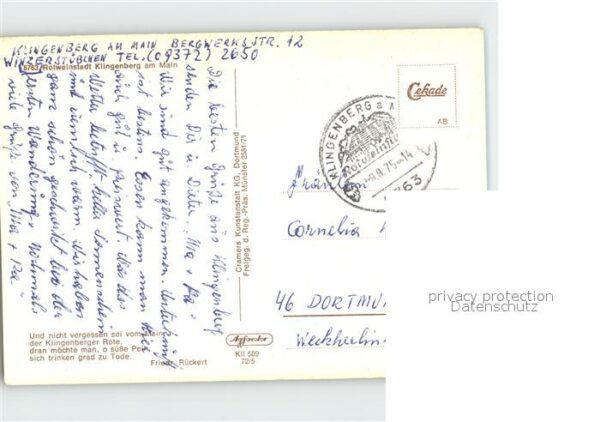 KLINGENBERG AM MAIN BERGWERKSTR. 12
WINZERSTÜBCHEN TEL. (09372) 2650
8763 Rotweinstadt Klingenberg am Main
Die besten Grüße aus Klingenberg
senden Dir u. Dieter, "Ma + Pa"
Wir sind gut angekommen. Unterkunft
ist bestens. Essen kann man hier
auch gut u. preiswert. Was das
Wetter betrifft, heller Sonnenschein
und ziemlich warm. Wir haben
ganz schön geschwitzt bei der
ersten Wanderung. Nochmals
viele Grüße von "Ma + Pa"
Und nicht vergessen sei vom Main
der Klingenberger Rote,
dran möchte man, o süße Pein,
sich trinken grad zu Tode.
Friedr. Rückert
Cramers Kunstanstalt KG, Dortmund
Freigeg. d. Reg.-Präs. Münster 2581/71
KII 509
72/5
Cekade
AB
KLINGENBERG a.
Rotweinstadt
-8.9.75-14
8763
Fräulein
Cornelia
46 DORTMU
privacy protection
Datenschutz